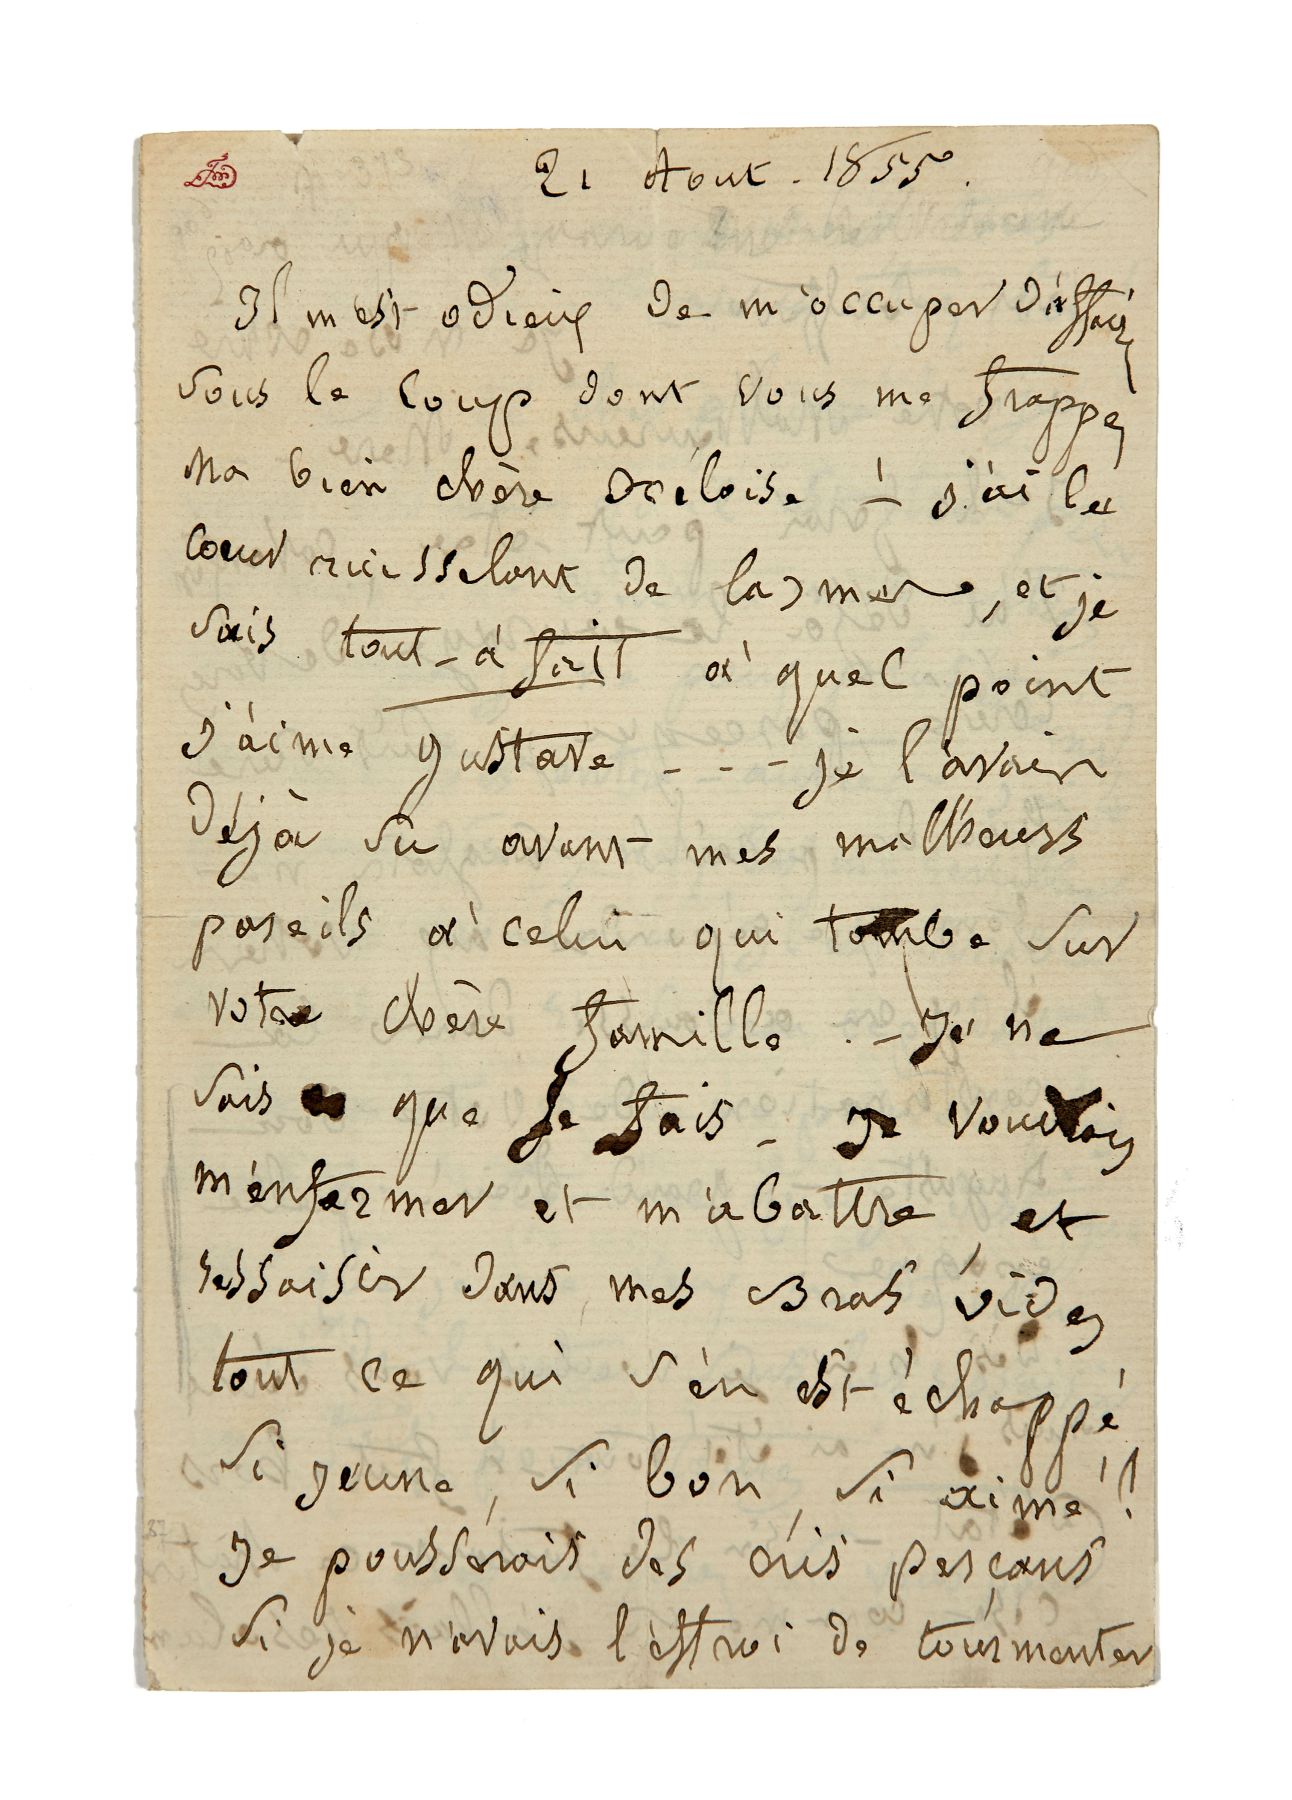 21 Aout. 1855.
Il m'est odieux de m'occuper d'affaires
sous le coup dont vous me frappez
ma bien chère Héloïse ! – j'ai le
cœur ruisselant de larmes, et je
sais tout-à fait à quel point
j'aime Gustave - - - - je l'avais
déjà su avant mes malheurs
pareils à celui qui tombe sur
votre chère famille . – Je ne
sais que je fais – Je voudrais
m'enfermer et m'abattre et
ressaisir dans mes bras vides
tout ce qui s'en est échappé
si jeune, si bon, si aimé !!
Je pousserais des cris perçans
si je n'avais l'effroi de tourmenter